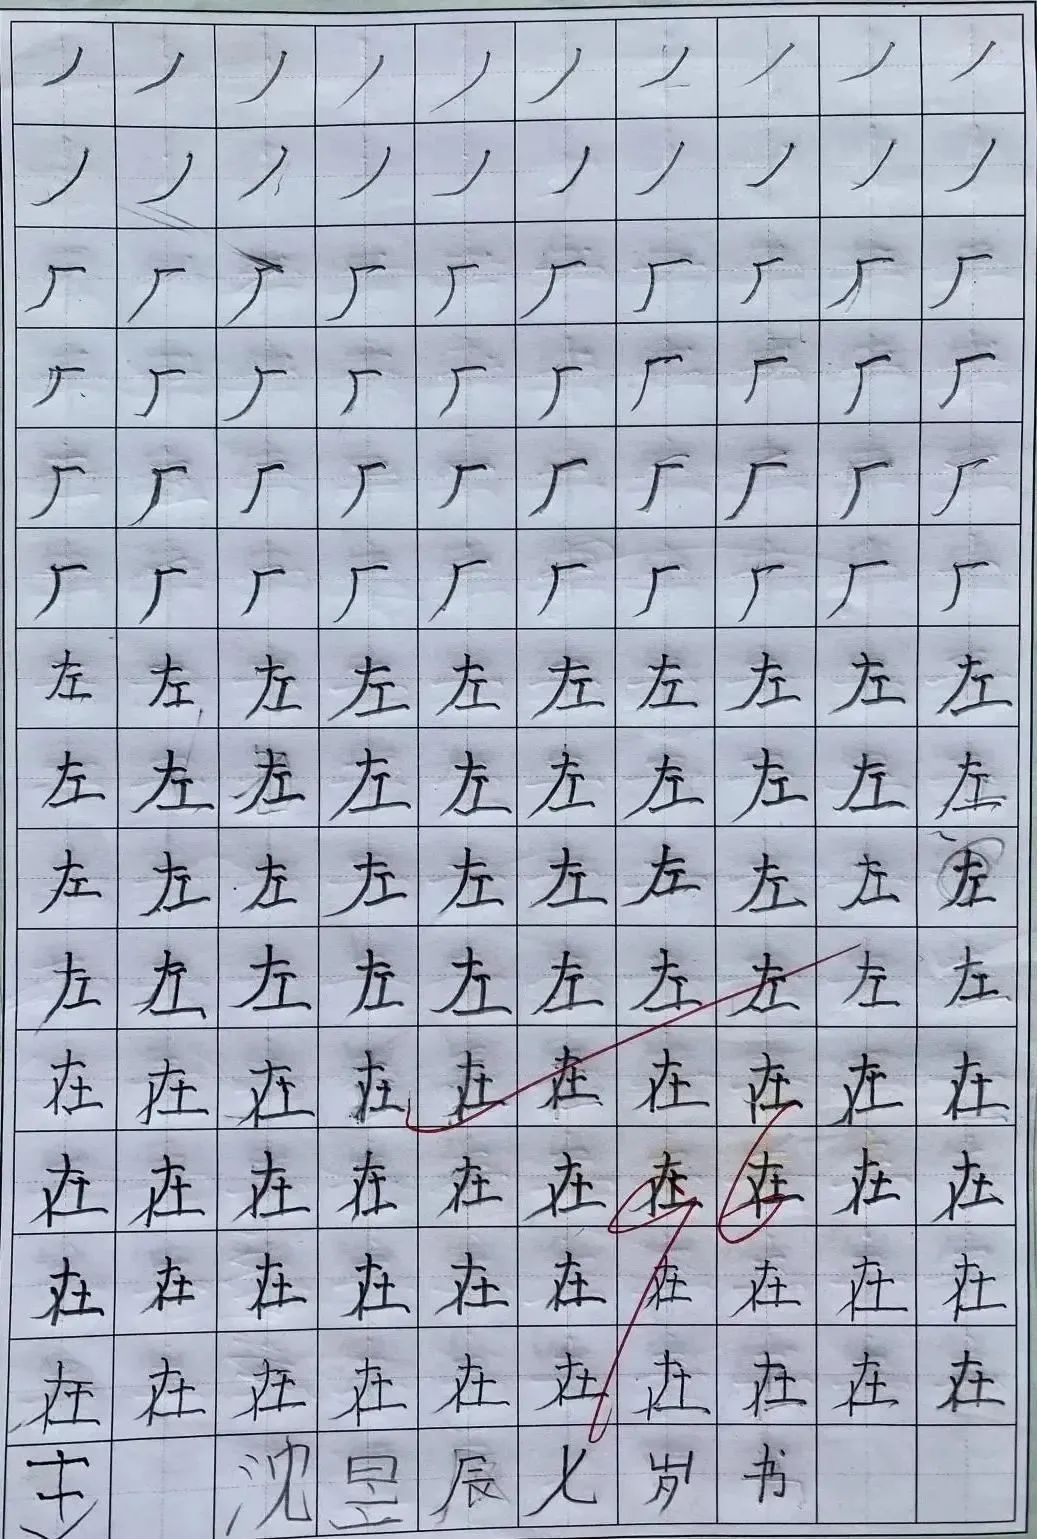 丿丿丿丿丿丿丿丿丿丿
丿丿丿丿丿丿丿丿丿丿
厂厂厂厂厂厂厂厂厂厂
厂厂厂厂厂厂厂厂厂厂
厂厂厂厂厂厂厂厂厂厂
厂厂厂厂厂厂厂厂厂厂
左左左左左左左左左左
左左左左左左左左左左
左左左左左左左左左左
左左左左左左左左左左
在在在在在在在在在在
在在在在在在在在在在
在在在在在在在在在在
在在在在在在在在在在
沈昱辰七岁书